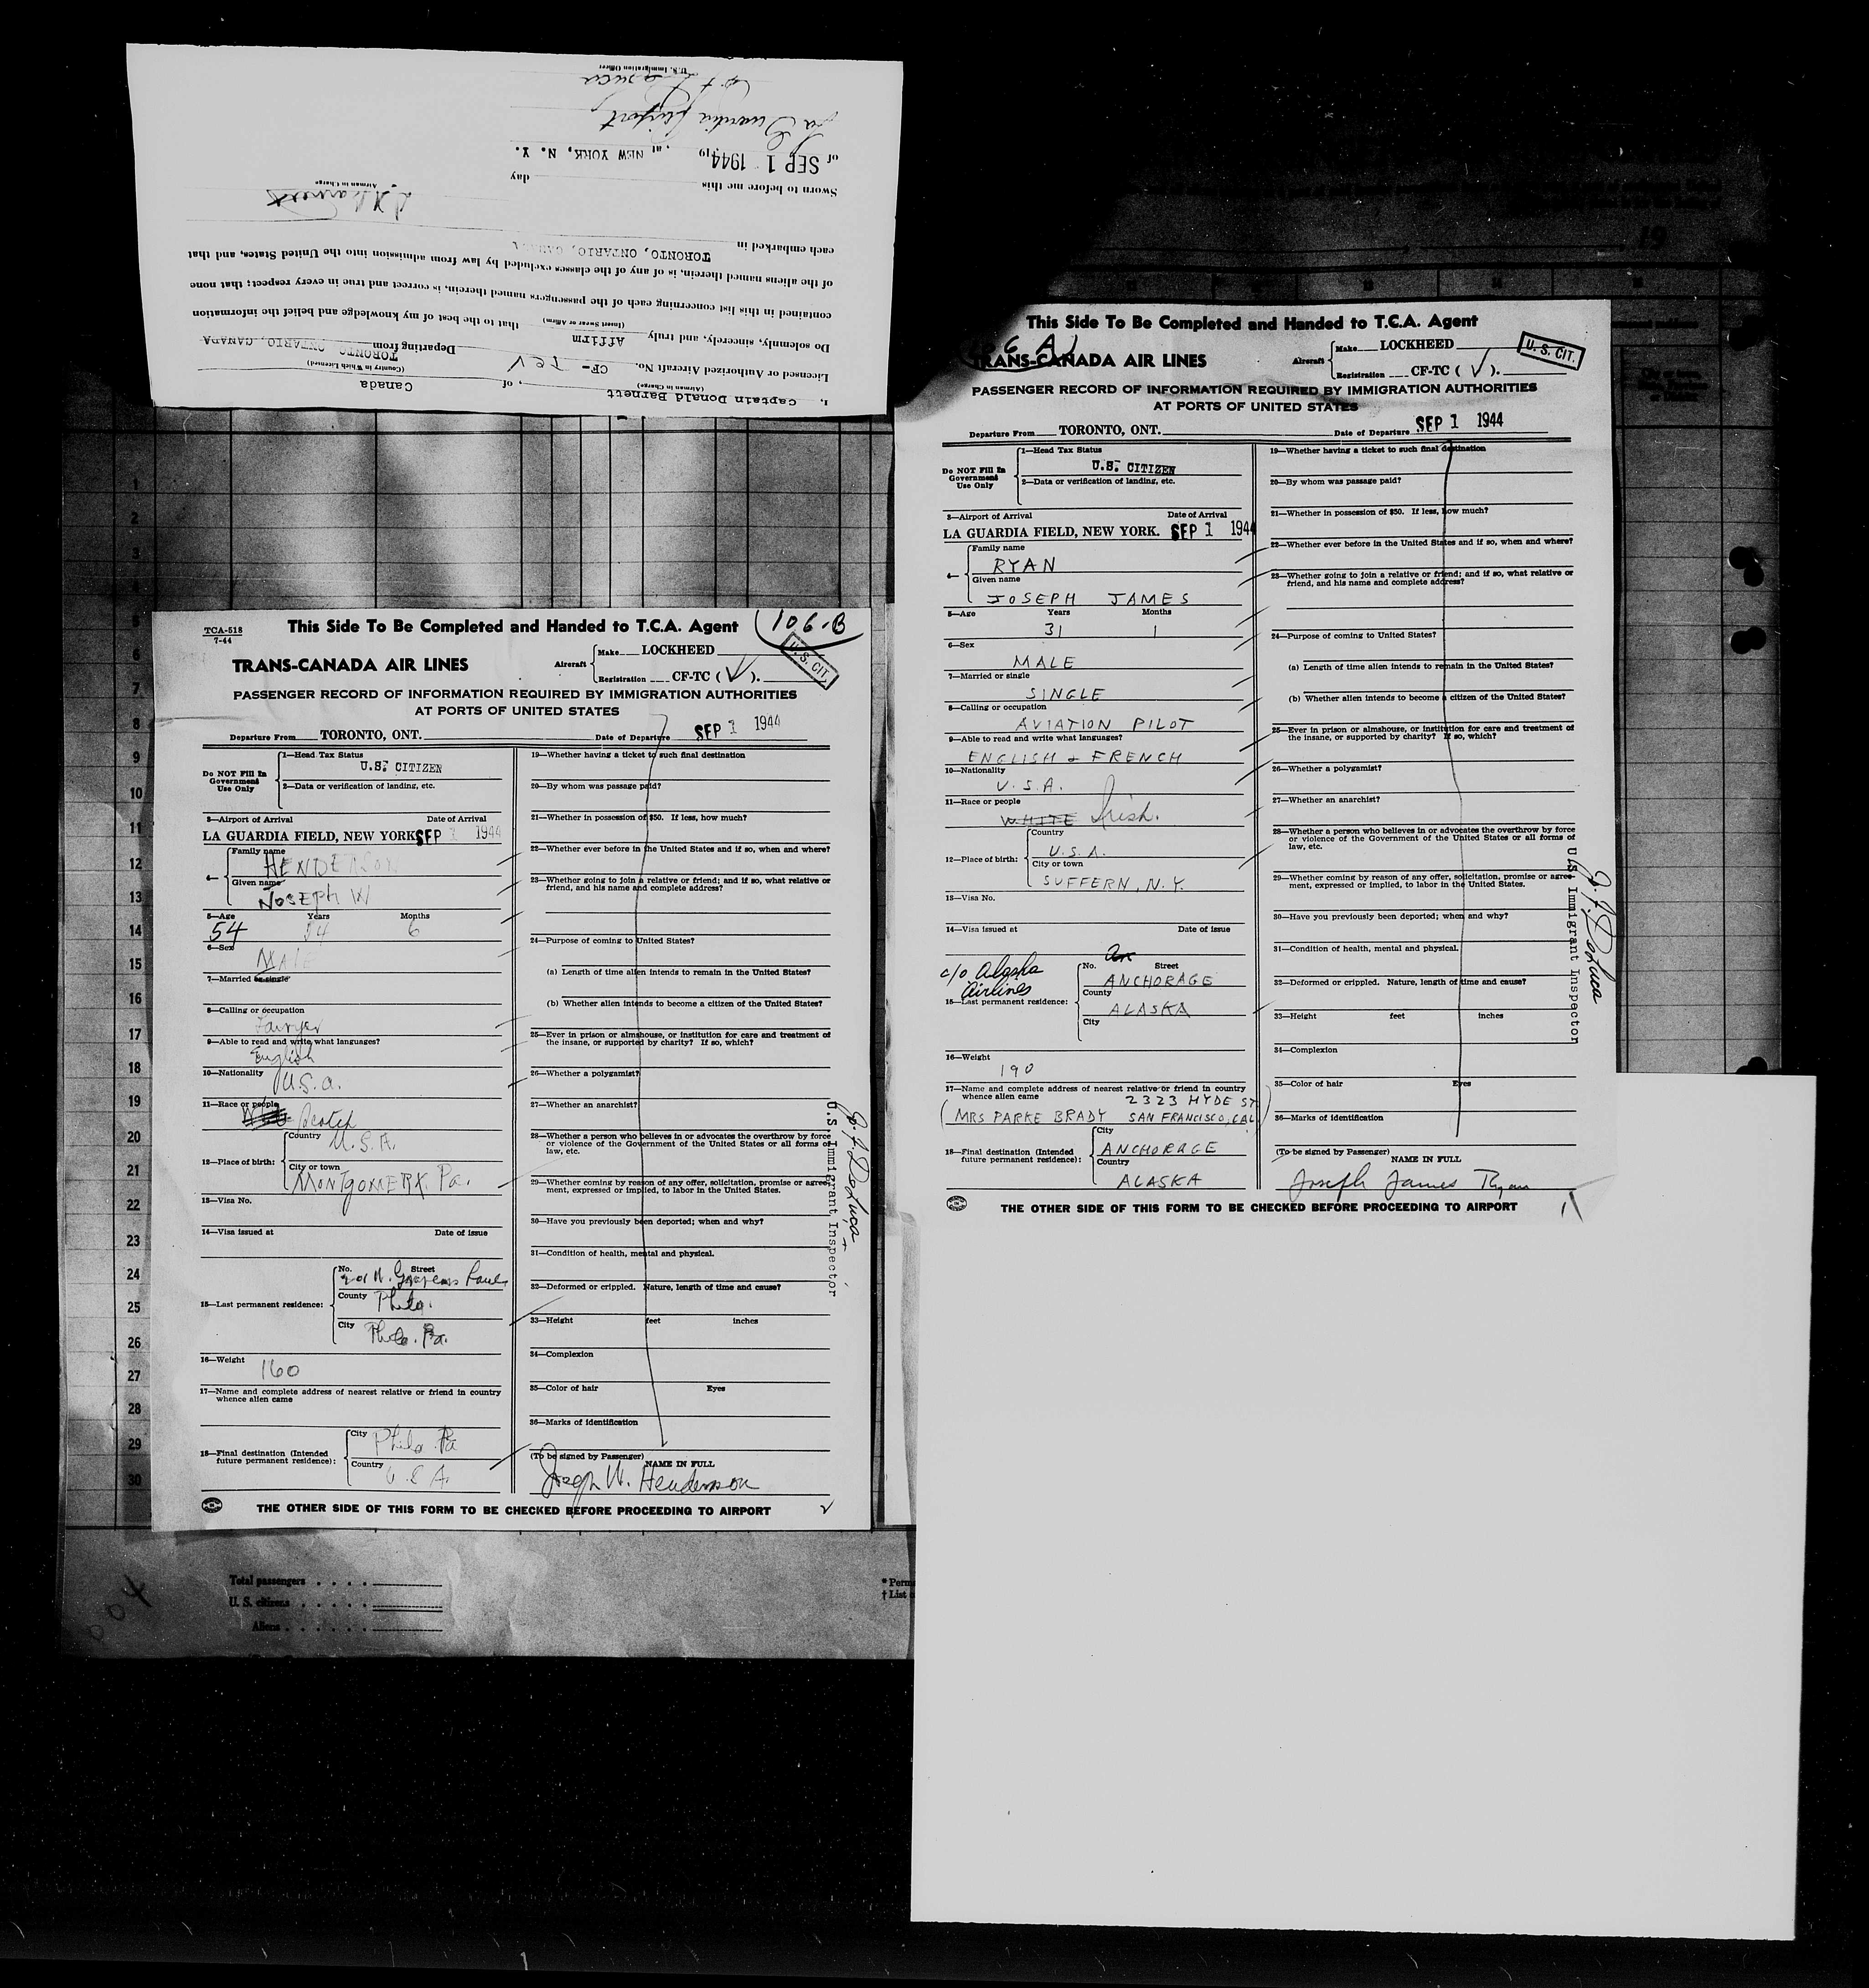 I, Captain Donald Barnett, of Canada
(Airman in Charge) (Country in Which Licensed)
Licensed or Authorized Aircraft No. CF- TCV Departing from TORONTO ONTARIO, CANADA
Do solemnly, sincerely, and truly Affirm that to the best of my knowledge and belief the information
(Insert Swear or Affirm)
contained in this list concerning each of the passengers named therein, is correct and true in every respect; that none
of the aliens named therein, is of any of the classes excluded by law from admission into the United States, and that
each embarked in TORONTO, ONTARIO,
Airman in Charge
Sworn to before me this day
of SEP 1 1944, 19 , at NEW YORK, N. Y.
La Guardia Airport
U.S. Immigration Officer
106-B
TCA-518
7-44
This Side To Be Completed and Handed to T.C.A. Agent
U. S. CIT.
TRANS-CANADA AIR LINES
Aircraft
Make LOCKHEED
Registration CF-TC ( V ).
PASSENGER RECORD OF INFORMATION REQUIRED BY IMMIGRATION AUTHORITIES
AT PORTS OF UNITED STATES
Departure From TORONTO, ONT. Date of Departure SEP 1 1944
Do NOT Fill In
Government
Use Only
1—Head Tax Status
U.S. CITIZEN
2—Data or verification of landing, etc.
3—Airport of Arrival Date of Arrival
LA GUARDIA FIELD, NEW YORK. SEP 1 1944
4—
Family name
HENDERSON
Given name
JOSEPH W
5—Age Years Months
54 54 6
6—Sex
Male
7—Married or single
8—Calling or occupation
Lawyer
9—Able to read and write what languages?
English
10—Nationality
U.S.A.
11—Race or people
Scotch
12—Place of birth:
Country
U.S.A.
City or town
MONTGOMERY, Pa.
13—Visa No.
14—Visa issued at Date of issue
15—Last permanent residence:
No. Street
Lane
County Phila.
City Phila. Pa.
16—Weight
160
17—Name and complete address of nearest relative or friend in country
whence alien came
18—Final destination (Intended
future permanent residence):
City Phila Pa
Country U.S.A.
19—Whether having a ticket to such final destination
20—By whom was passage paid?
21—Whether in possession of $50. If less, how much?
22—Whether ever before in the United States and if so, when and where?
23—Whether going to join a relative or friend; and if so, what relative or
friend, and his name and complete address?
24—Purpose of coming to United States?
(a) Length of time alien intends to remain in the United States?
(b) Whether alien intends to become a citizen of the United States?
25—Ever in prison or almshouse, or institution for care and treatment of
the insane, or supported by charity? If so, which?
26—Whether a polygamist?
27—Whether an anarchist?
28—Whether a person who believes in or advocates the overthrow by force
or violence of the Government of the United States or all forms of
law, etc.
29—Whether coming by reason of any offer, solicitation, promise or agree-
ment, expressed or implied, to labor in the United States.
30—Have you previously been deported; when and why?
31—Condition of health, mental and physical.
32—Deformed or crippled. Nature, length of time and cause?
33—Height feet inches
34—Complexion
35—Color of hair Eyes
36—Marks of identification
(To be signed by Passenger)
NAME IN FULL
Joseph W. Henderson
THE OTHER SIDE OF THIS FORM TO BE CHECKED BEFORE PROCEEDING TO AIRPORT
2
U.S. Immigrant Inspector
Total passengers
U. S. citizens
Aliens
This Side To Be Completed and Handed to T.C.A. Agent
U. S. CIT.
TRANS-CANADA AIR LINES
Aircraft
Make LOCKHEED
Registration CF-TC ( V ).
PASSENGER RECORD OF INFORMATION REQUIRED BY IMMIGRATION AUTHORITIES
AT PORTS OF UNITED STATES
Departure From TORONTO, ONT. Date of Departure SEP 1 1944
Do NOT Fill In
Government
Use Only
1—Head Tax Status
U.S. CITIZEN
2—Data or verification of landing, etc.
3—Airport of Arrival Date of Arrival
LA GUARDIA FIELD, NEW YORK. SEP 1 1944
4—
Family name
RYAN
Given name
JOSEPH JAMES
5—Age Years Months
31 1
6—Sex
MALE
7—Married or single
SINGLE
8—Calling or occupation
AVIATION PILOT
9—Able to read and write what languages?
ENGLISH & FRENCH
10—Nationality
U.S.A.
11—Race or people
WHITE Irish.
12—Place of birth:
Country
U.S.A.
City or town
SUFFERN, N.Y.
13—Visa No.
14—Visa issued at Date of issue
c/o Alaska
Airlines
15—Last permanent residence:
No. Street
ANCHORAGE
County
ALASKA
City
16—Weight
190
17—Name and complete address of nearest relative or friend in country
whence alien came 2323 HYDE ST
MRS PARKE BRADY SAN FRANCISCO, CAL
18—Final destination (Intended
future permanent residence):
City
ANCHORAGE
Country
ALASKA
19—Whether having a ticket to such final destination
20—By whom was passage paid?
21—Whether in possession of $50. If less, how much?
22—Whether ever before in the United States and if so, when and where?
23—Whether going to join a relative or friend; and if so, what relative or
friend, and his name and complete address?
24—Purpose of coming to United States?
(a) Length of time alien intends to remain in the United States?
(b) Whether alien intends to become a citizen of the United States?
25—Ever in prison or almshouse, or institution for care and treatment of
the insane, or supported by charity? If so, which?
26—Whether a polygamist?
27—Whether an anarchist?
28—Whether a person who believes in or advocates the overthrow by force
or violence of the Government of the United States or all forms of
law, etc.
29—Whether coming by reason of any offer, solicitation, promise or agree-
ment, expressed or implied, to labor in the United States.
30—Have you previously been deported; when and why?
31—Condition of health, mental and physical.
32—Deformed or crippled. Nature, length of time and cause?
33—Height feet inches
34—Complexion
35—Color of hair Eyes
36—Marks of identification
(To be signed by Passenger)
NAME IN FULL
Joseph James Ryan
THE OTHER SIDE OF THIS FORM TO BE CHECKED BEFORE PROCEEDING TO AIRPORT
U.S. Immigrant Inspector